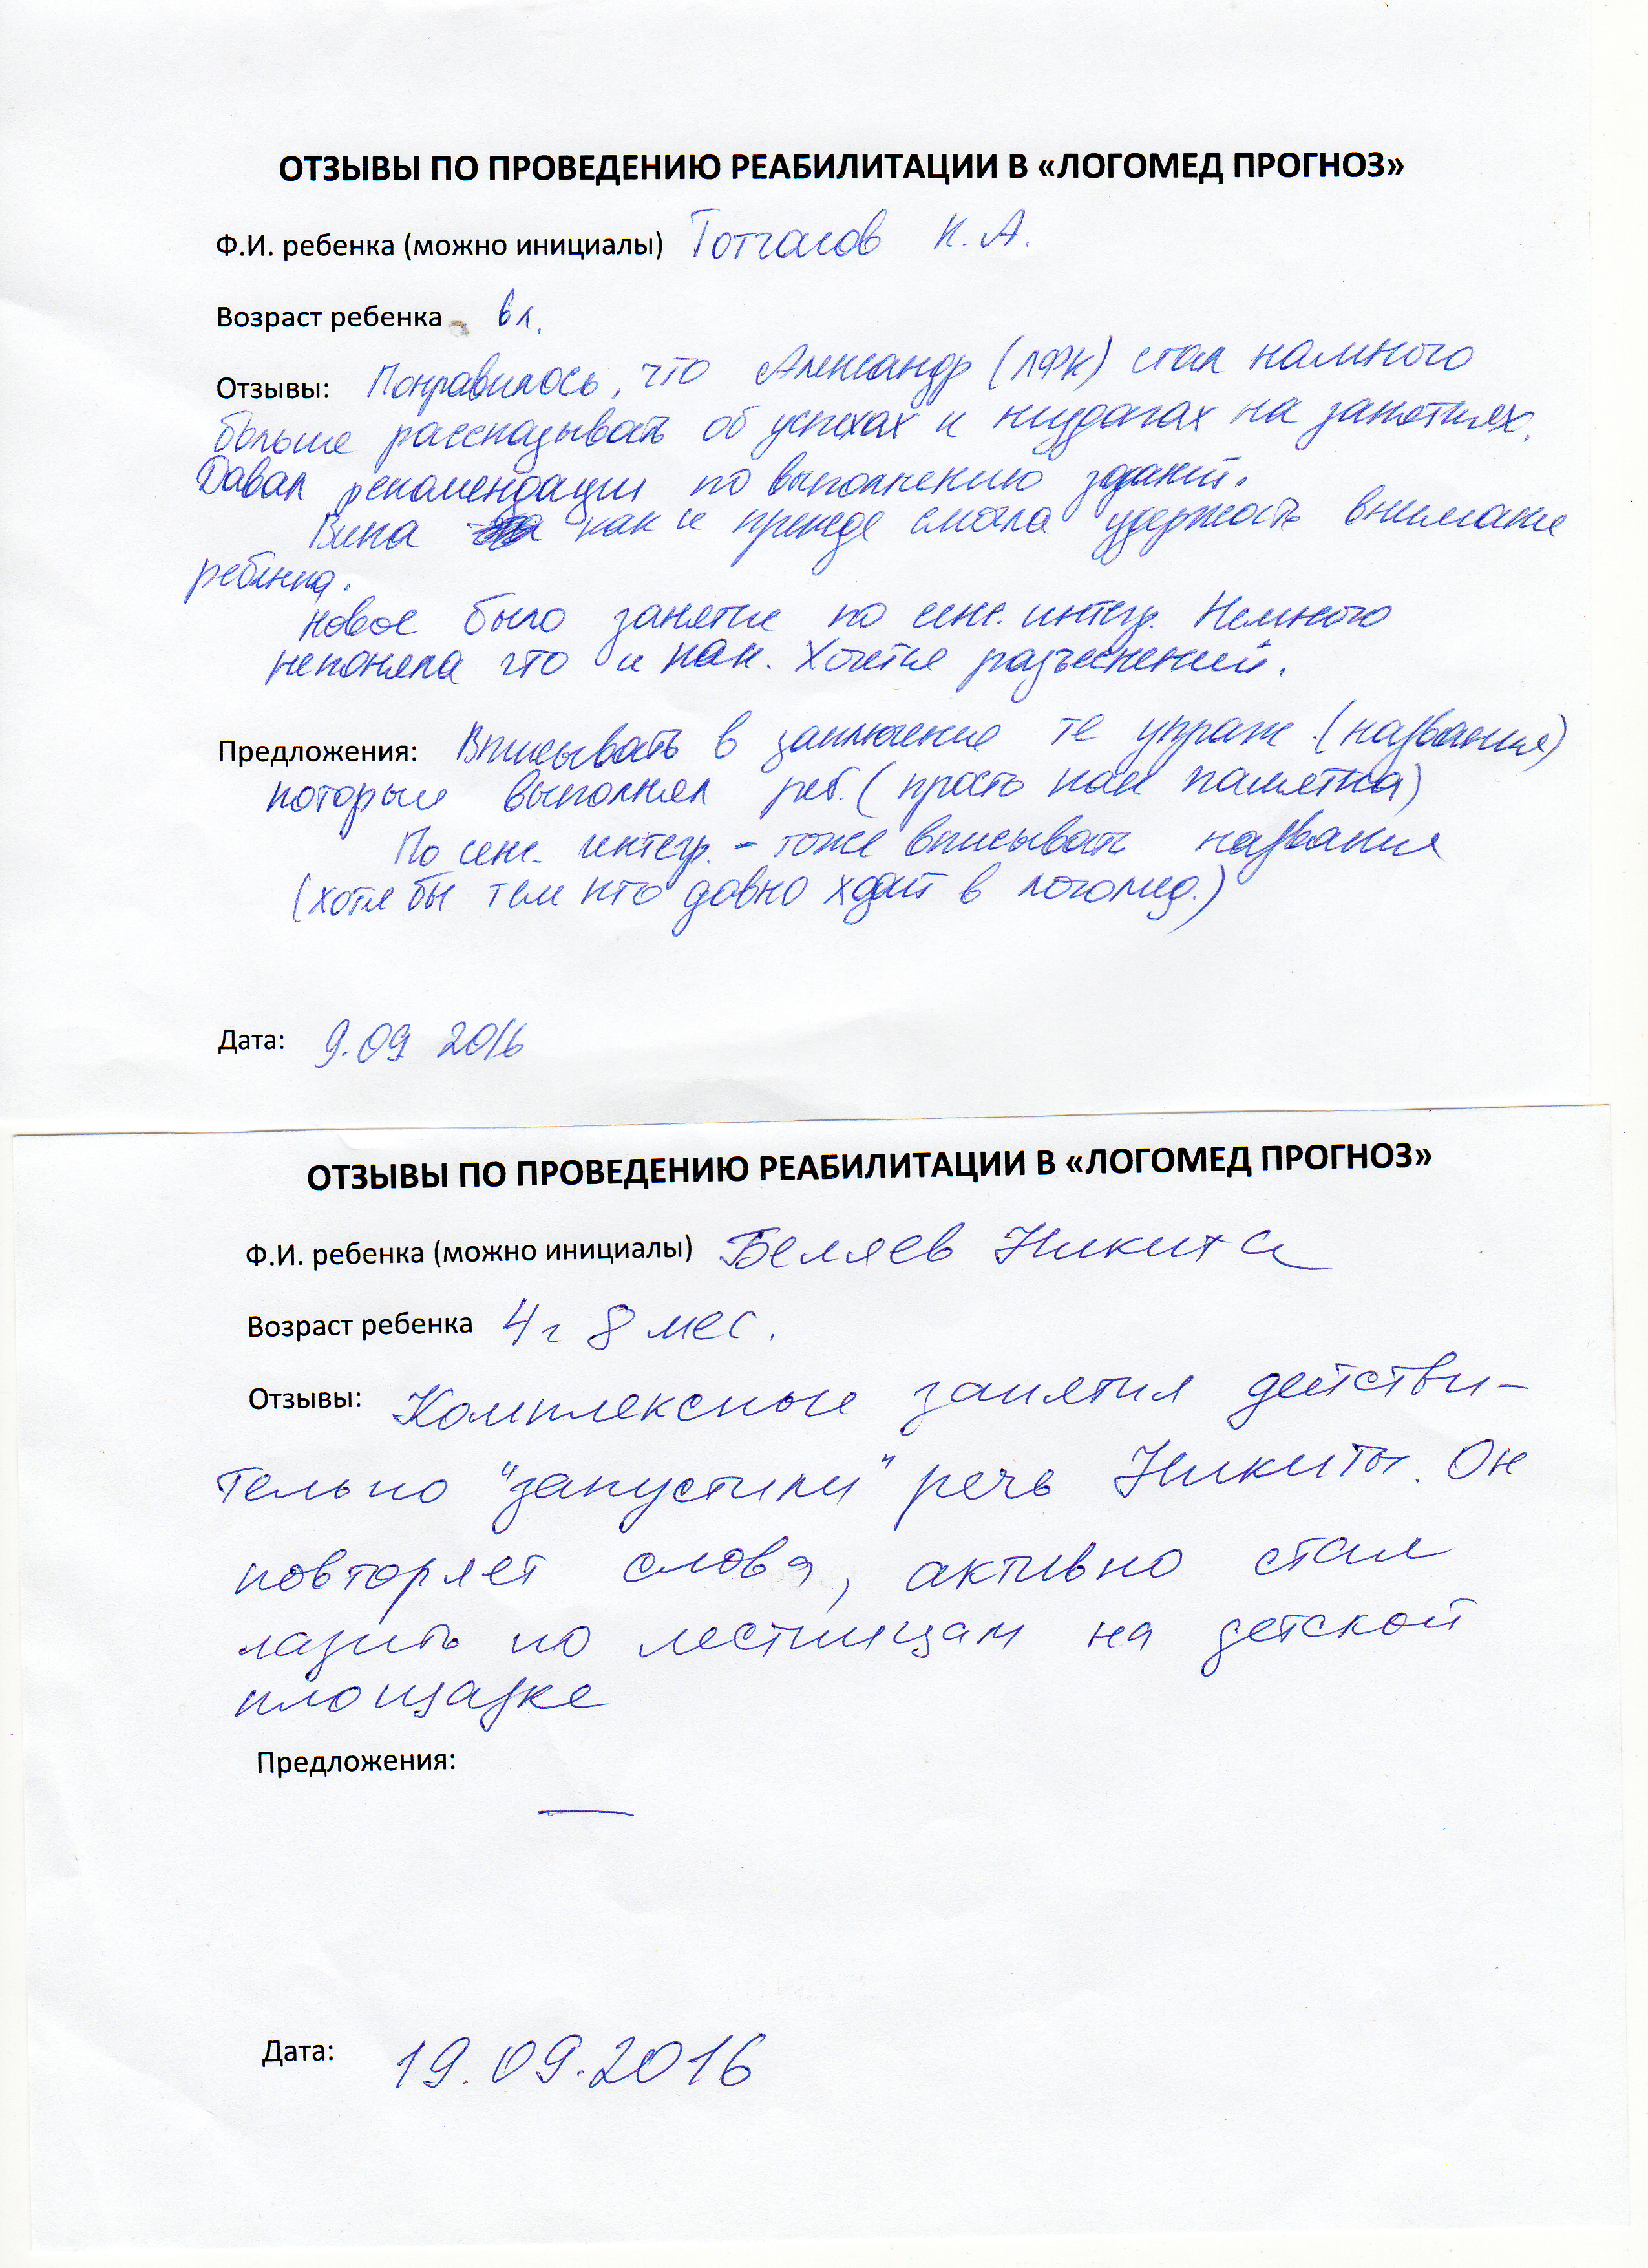 ОТЗЫВЫ ПО ПРОВЕДЕНИЮ РЕАБИЛИТАЦИИ В «ЛОГОМЕД ПРОГНОЗ»
Ф.И. ребенка (можно инициалы) К. А.
Возраст ребенка 6 л.
Отзывы: Понравилось, что Александр (ЛФК) стал намного
больше рассказывать об успехах и неудачах на занятиях.
Давал рекомендации по выполнению зданий.
Вика как и прежде смогла удержать внимание
ребенка.
Новое было занятие по сенс. интегр. Немного
непоняла что и как. Хочется разъяснений.
Предложения: Вписывать в заключение те упраж. (названия)
которые выполнял реб. (просто как памятка)
По сенс. интегр. - тоже вписывать названия
(хотя бы тем кто давно ходит в логомед.)
Дата: 9.09 2016
ОТЗЫВЫ ПО ПРОВЕДЕНИЮ РЕАБИЛИТАЦИИ В «ЛОГОМЕД ПРОГНОЗ»
Ф.И. ребенка (можно инициалы) Беляев Никита
Возраст ребенка 4 г 8 мес.
Отзывы: Комплексные занятия действи-
тельно "запустили" речь Никиты. Он
повторяет слова, активно стал
лазить по лестницам на детской
площадке
Предложения:
—
Дата: 19.09.2016